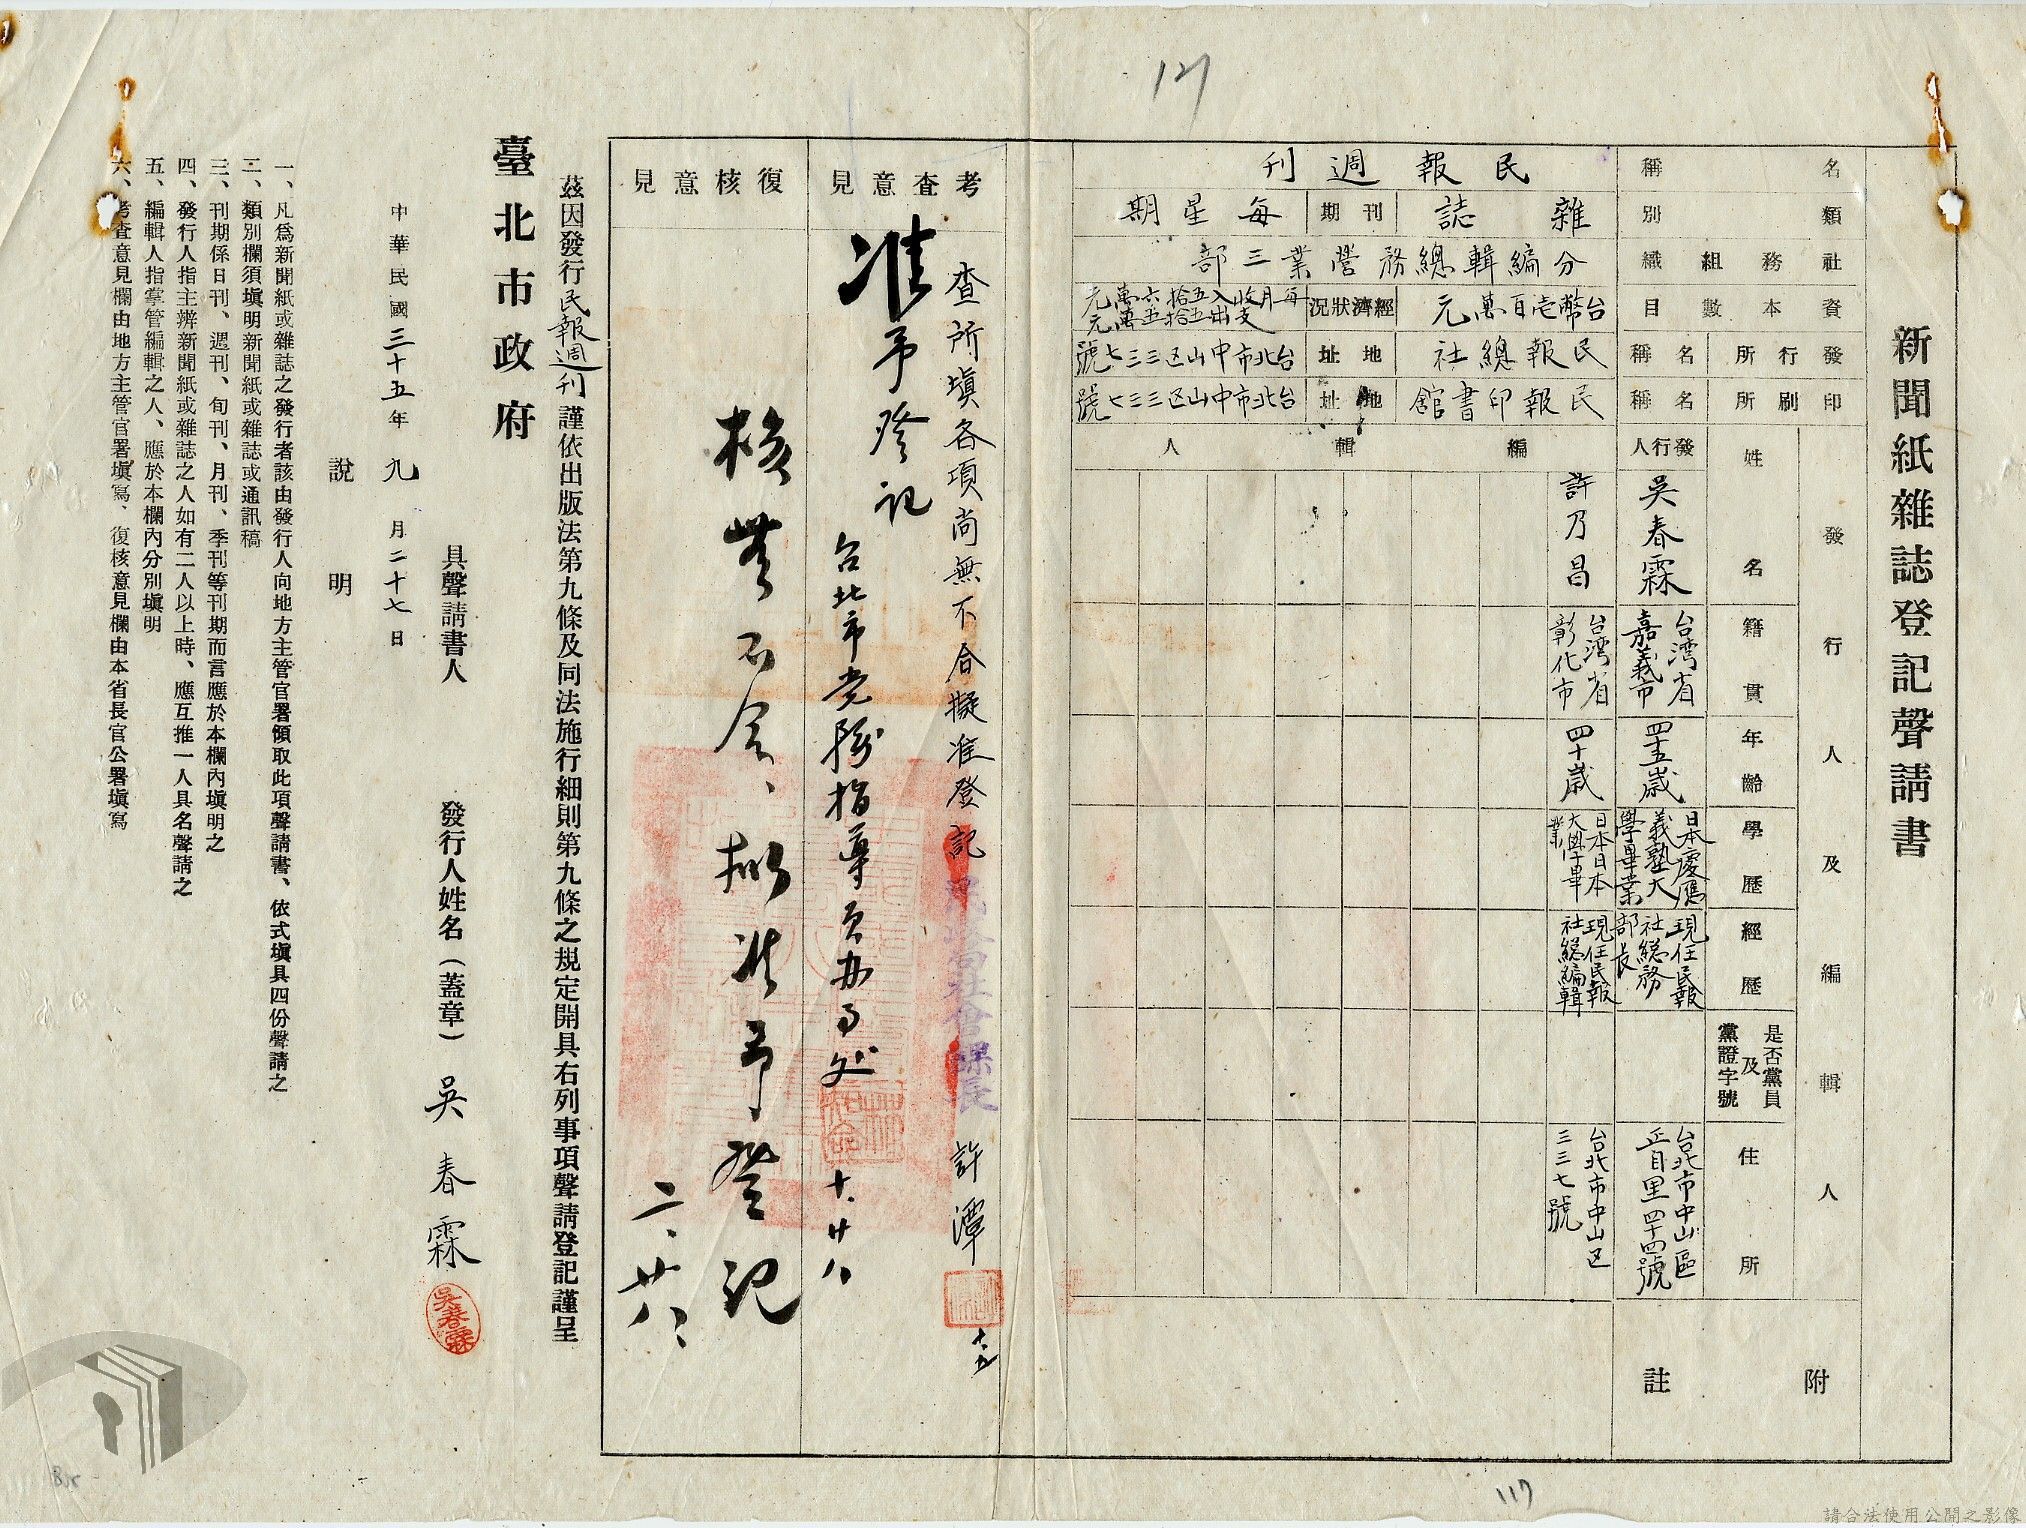 新聞紙雜誌登記聲請書
名稱
民報週刊
類別
雜誌
刊期
每星期
社務組織
分編輯總務營業三部
資本數目
台幣壱百萬元
經濟狀況
每月收入五拾六萬元
支出五拾五萬元
發行所
名稱
民報總社
地址
台北市中山区三三七號
印刷所
名稱
民報印書館
地址
台北市中山区三三七號
發行人及編輯人
姓名
籍貫
年齡
學歷
經歷
是否黨員及黨證字號
住所
發行人
吳春霖
台湾省嘉義市
四十五歲
日本慶應義塾大學畢業
現任民報社総務部長
台北市中山區正自里四十四號
編輯人
許乃昌
台湾省彰化市
四十歲
日本日本大學畢業
現任民報社総編輯
台北市中山区三三七號
附註
考查意見
查所填各項尚無不合擬准登記
社會課長 許潭
准予登記
十、廿八
復核意見
核無不合、擬准予登記
二、廿八、
茲因發行民報週刊謹依出版法第九條及同法施行細則第九條之規定開具右列事項聲請登記謹呈
臺北市政府
具聲請書人 發行人姓名(蓋章) 吳春霖
吳春霖
中華民國三十五年九月二十七日
說明
一、凡爲新聞紙或雜誌之發行者該由發行人向地方主管官署領取此項聲請書、依式塡具四份聲請之
二、類別欄須塡明新聞紙或雜誌或通訊稿
三、刊期係日刊、週刊、旬刊、月刊、季刊等刊期而言應於本欄內塡明之
四、發行人指主辦新聞紙或雜誌之人如有二人以上時、應互推一人具名聲請之
五、編輯人指掌管編輯之人、應於本欄內分別塡明
六、考查意見欄由地方主管官署塡寫、復核意見欄由本省長官公署塡寫
117
請合法使用公開之影像